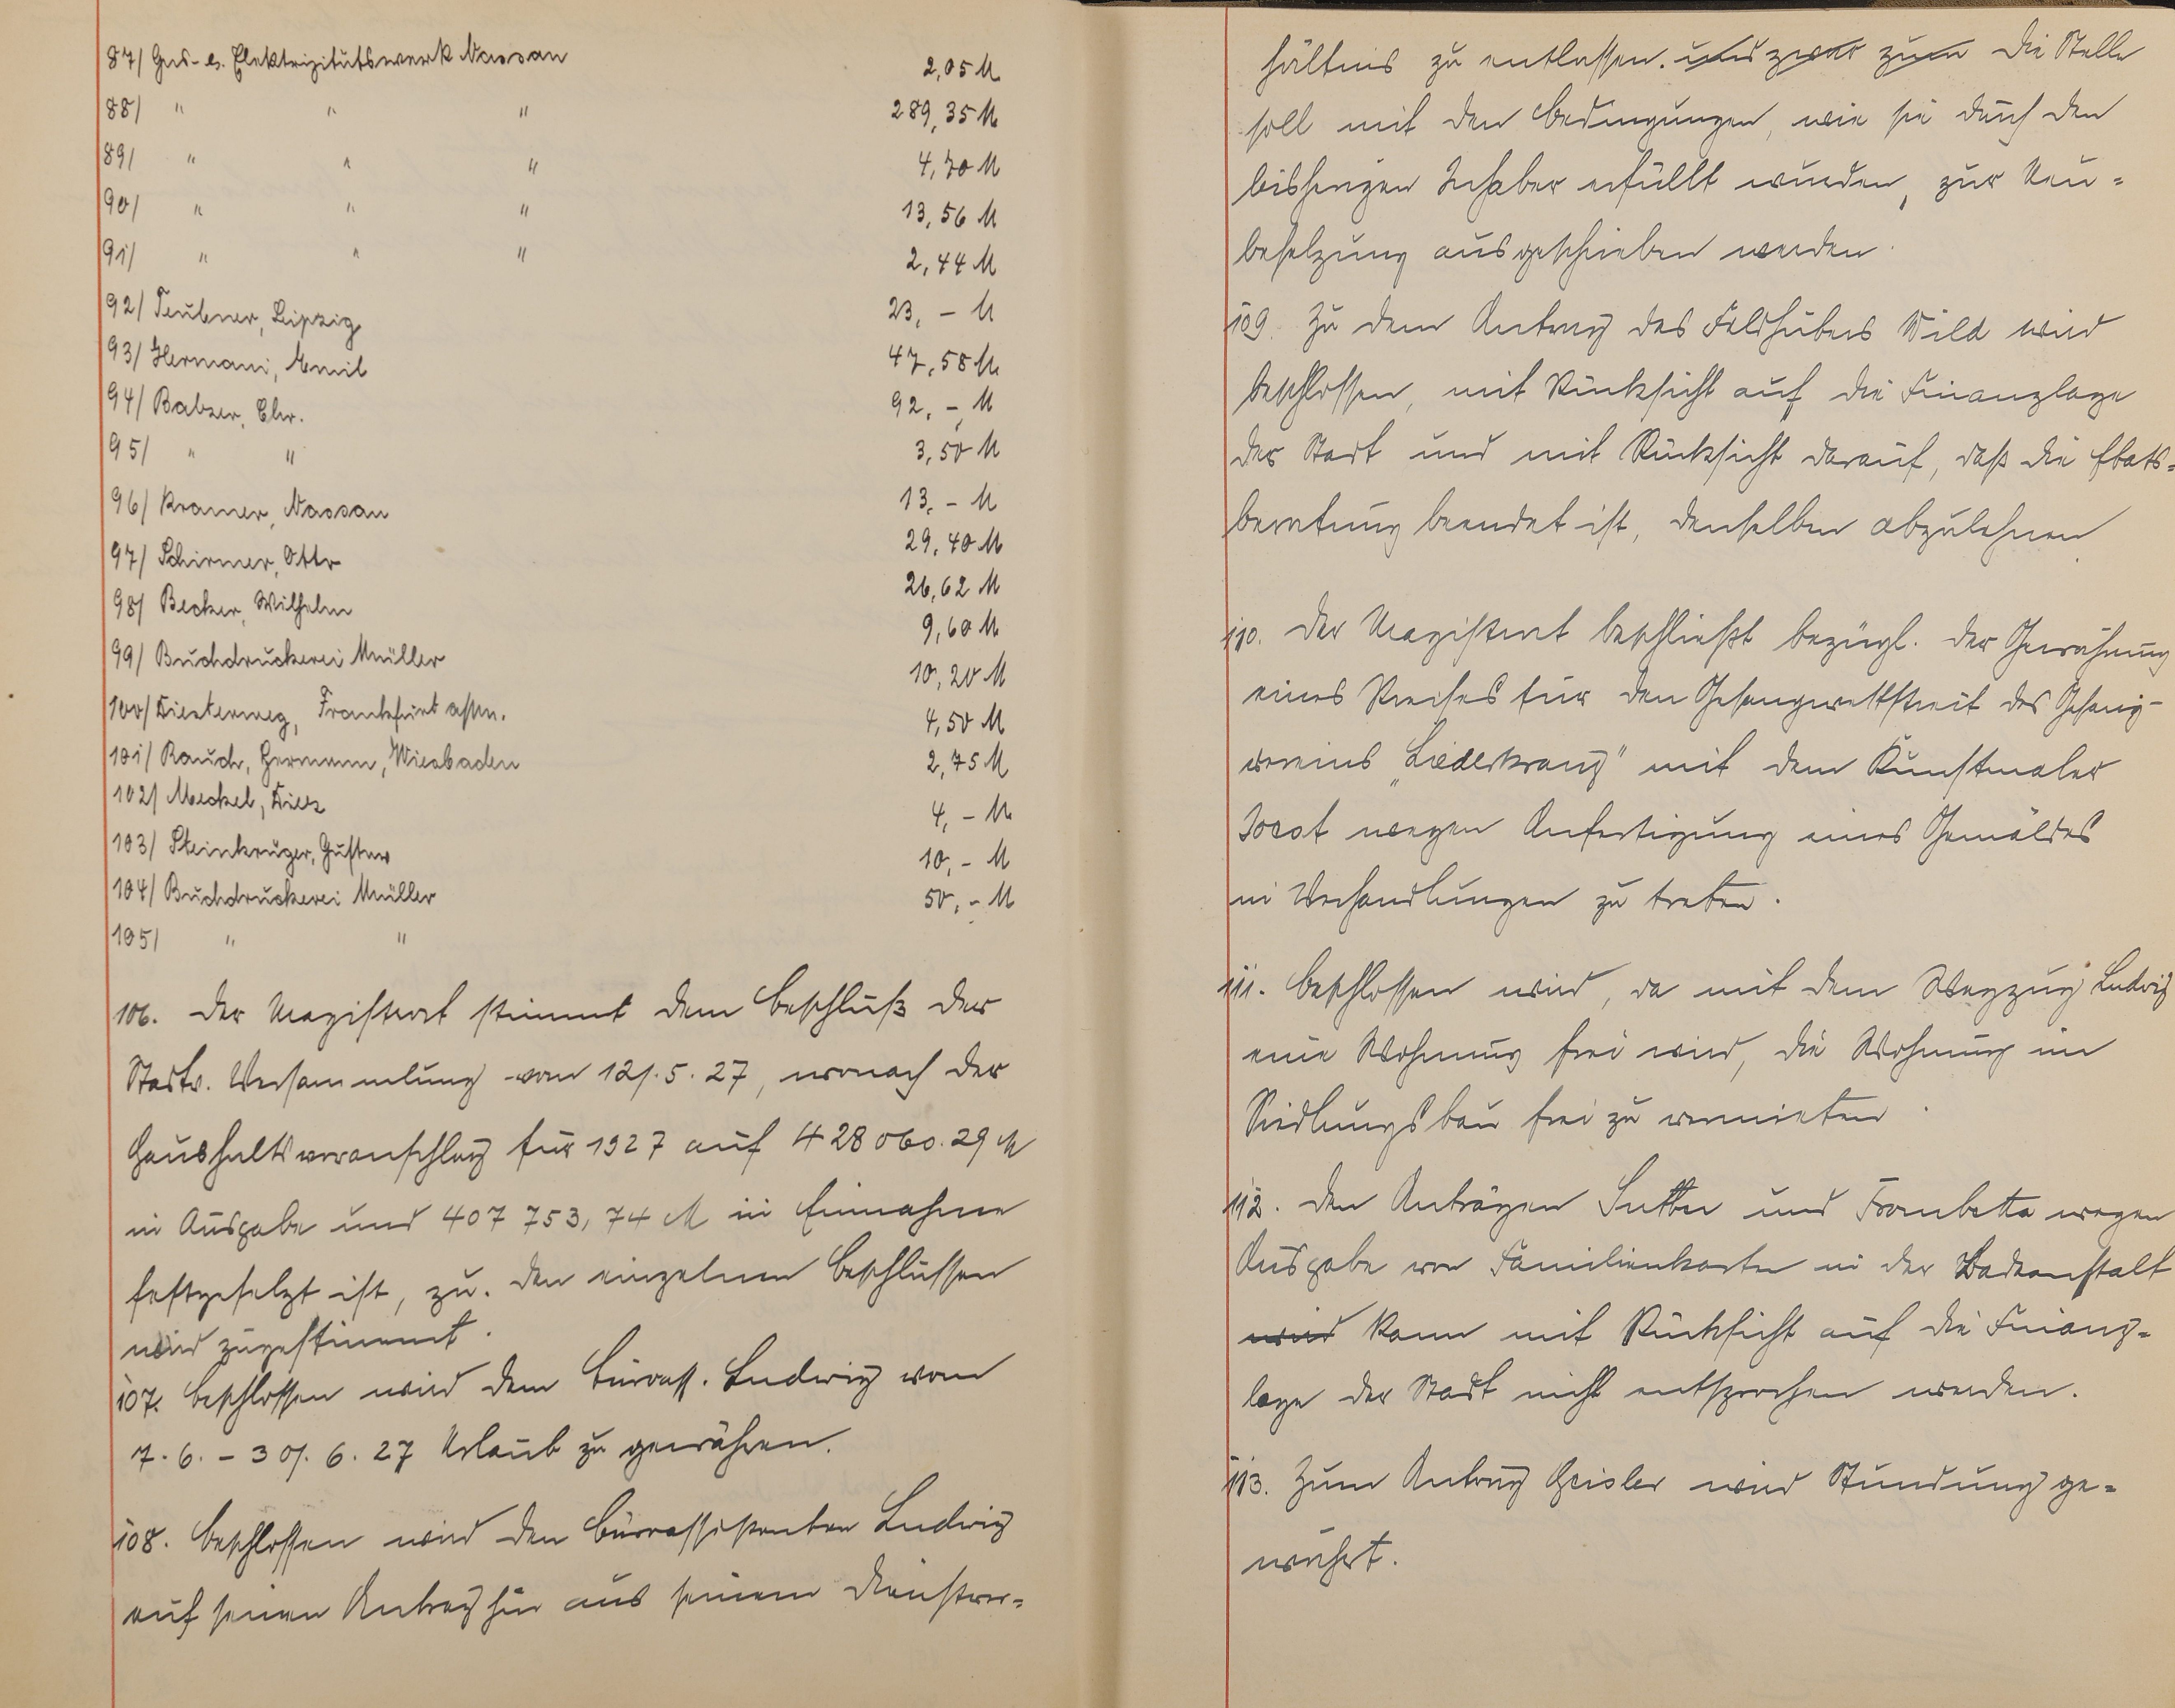 87/ Gas- u. Elektrizitätswerk Nassau 2,05 M
88/ " " " 289,35 M
89/ " " " 4,70 M
90/ " " " 13,56 M
91/ " " " 2,44 M
92/ Teubner, Leipzig 23,- M
93/ Hermani, Emil 47,58 M
94/ Balzer, Chr. 92,- M
95/ " " 3,50 M
96/ Kramer, Nassau 13,- M
97/ Schirmer, Otto 29,40 M
98/ Becker, Wilhelm 26,62 M
99/ Buchdruckerei Müller 9,60 M
100/ Diesterweg, Frankfurt a/M. 10,20 M
101/ Rauch, Hermann, Wiesbaden 4,50 M
102/ Meckel, Diez 2,75 M
103/ Steinkrüger, Gustav 4,- M
104/ Buchdruckerei Müller 10,- M
105/ " " 50,- M
106. Der Magistrat stimmt dem Beschluß der
Stadtv. Versammlung vom 12/.5.27, wonach der
Haushaltsvoranschlag für 1927 auf 428 060.29 M
in Ausgabe und 407 753,74 M in Einnahme
festgesetzt ist, zu. Den einzelnen Beschlüssen
wird zugestimmt.
107. Beschlossen wird dem Büroass. Ludwig vom
7.6. - 30/.6.27 Urlaub zu gewähren.
108. Beschlossen wird den Büroassistenten Ludwig
auf seinen Antrag hin aus seinem Dienstver=
hältnis zu entlassen. und zwar zum Die Stelle
soll mit den Bedingungen, wie sie durch den
bisherigen Inhaber erfüllt wurden, zur Neu=
besetzung ausgeschrieben werden.
109. Zu dem Antrag des Feldhüters Wild wird
beschlossen, mit Rücksicht auf die Finanzlage
der Stadt und mit Rücksicht darauf, daß die Etats=
beratung beendet ist, denselben abzulehnen
110. Der Magistrat beschließt bezügl. der Gewährung
eines Preises für den Gesangwettstreit des Gesang-
vereins „Liederkranz" mit dem Kunstmaler
wegen Anfertigung eines Gemäldes
in Verhandlungen zu treten.
111. Beschlossen wird, da mit dem Wegzug Ludwig
eine Wohnung frei wird, die Wohnung im
Siedlungsbau frei zu vermieten.
112. Den Anträgen und wegen
Ausgabe von Familienkarten in der Badeanstalt
wird kann mit Rücksicht auf die Finanz=
lage der Stadt nicht entsprochen werden.
113. Zum Antrag Geisler wird Stundung ge=
währt.